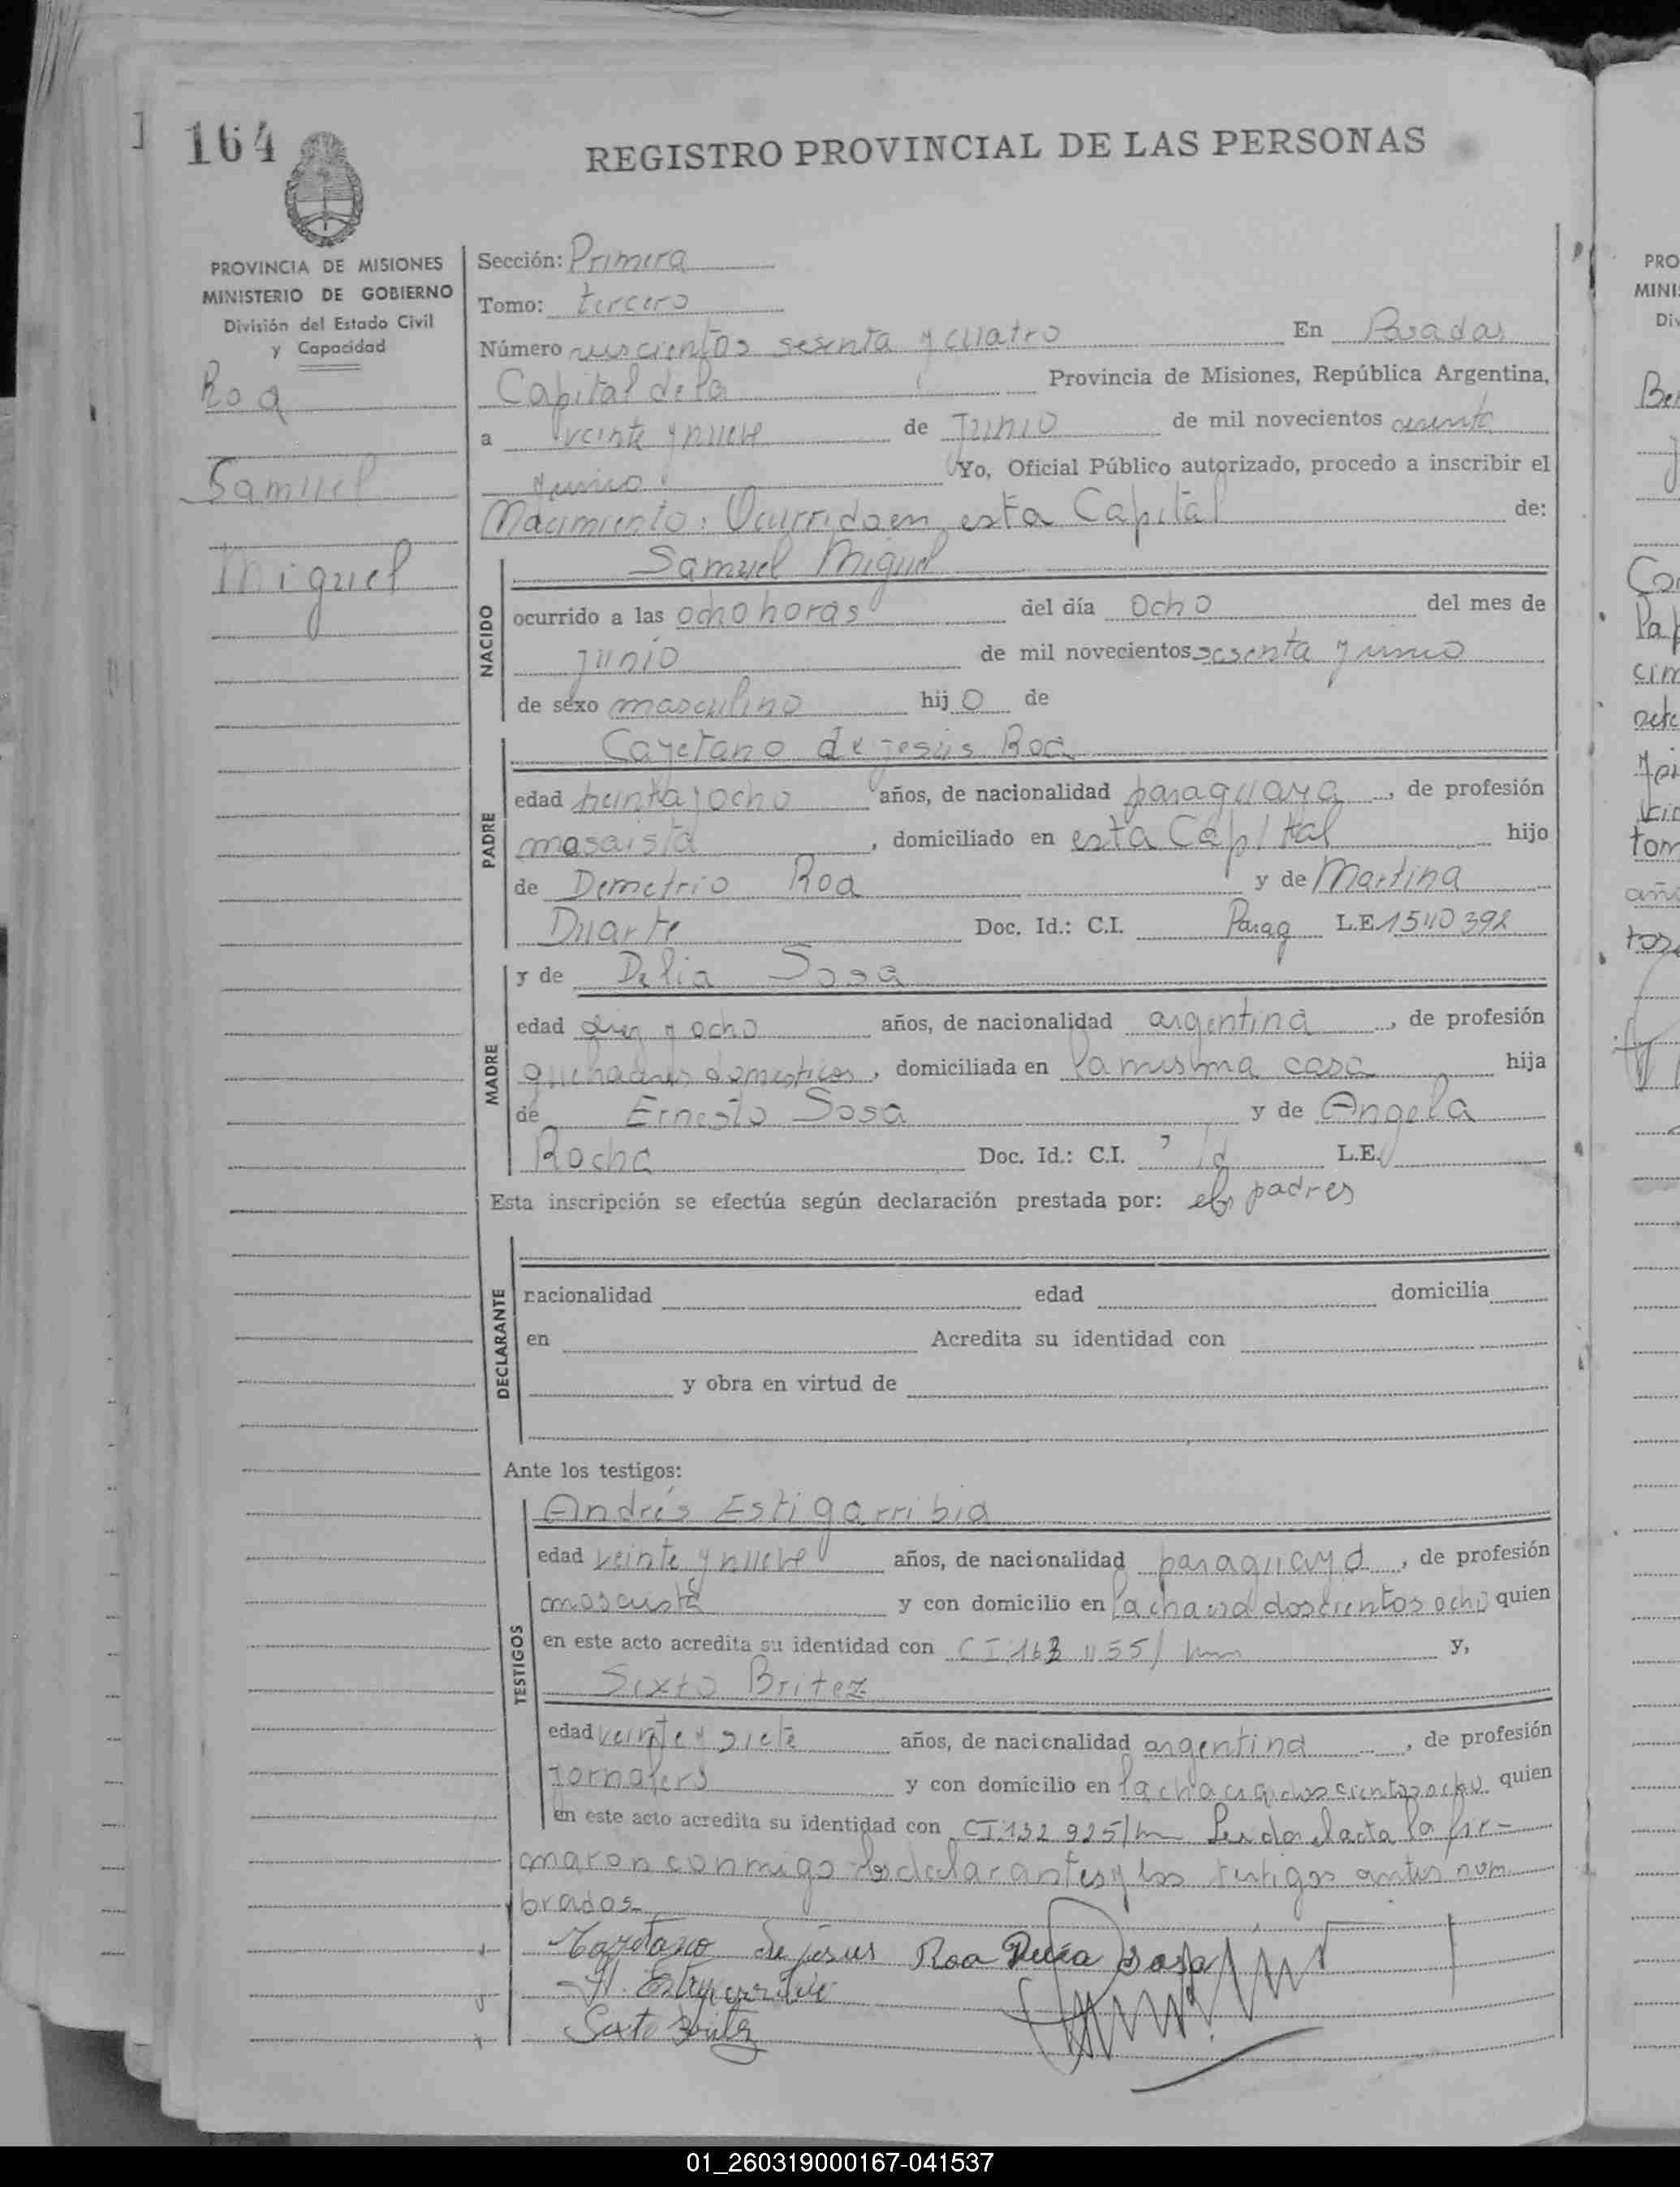 164
REGISTRO PROVINCIAL DE LAS PERSONAS
PROVINCIA DE MISIONES
MINISTERIO DE GOBIERNO
División del Estado Civil
y Capacidad
Roa
Samuel
Miguel
Sección: Primera
Tomo: tercero
Número seiscientos sesenta y cuatro En Posadas
Capital de la Provincia de Misiones, República Argentina,
a veinte y nueve de Junio de mil novecientos sesenta
y uno Yo, Oficial Público autorizado, procedo a inscribir el
Nacimiento: Ocurrido en esta Capital de:
NACIDO
Samuel Miguel
ocurrido a las ocho horas del día ocho del mes de
junio de mil novecientos sesenta y uno
de sexo masculino hijo de
PADRE
Cayetano de Jesús Roa
edad treinta y ocho años, de nacionalidad paraguaya, de profesión
mosaista, domiciliado en esta Capital hijo
de Demetrio Roa y de Martina
Duarte Doc. Id.: C.I. Parag L.E. 1540392
MADRE
y de Delia Sosa
edad diez y ocho años, de nacionalidad argentina, de profesión
quehaceres domesticos, domiciliada en la misma casa hija
de Ernesto Sosa y de Angela
Rocha Doc. Id.: C.I. L.E.
Esta inscripción se efectúa según declaración prestada por: los padres
DECLARANTE
nacionalidad edad domicilia
en Acredita su identidad con
y obra en virtud de
Ante los testigos:
TESTIGOS
Andrés Estigarribia
edad veinte y nueve años, de nacionalidad paraguayo, de profesión
mosaista y con domicilio en la chacra doscientos ocho quien
en este acto acredita su identidad con CI y,
Sixto Britez
edad veinte y siete años, de nacionalidad argentina, de profesión
Jornalero y con domicilio en la chacra doscientos ocho quien
en este acto acredita su identidad con CI 132 925/m Leida el acta la fir-
maron conmigo los declarantes y los testigos antes nom
brados.
Cayetano de jesus Roa Delia Sosa
A. Estigarribia
Sixto Britez
PRO
MINI
Div
01_260319000167-041537